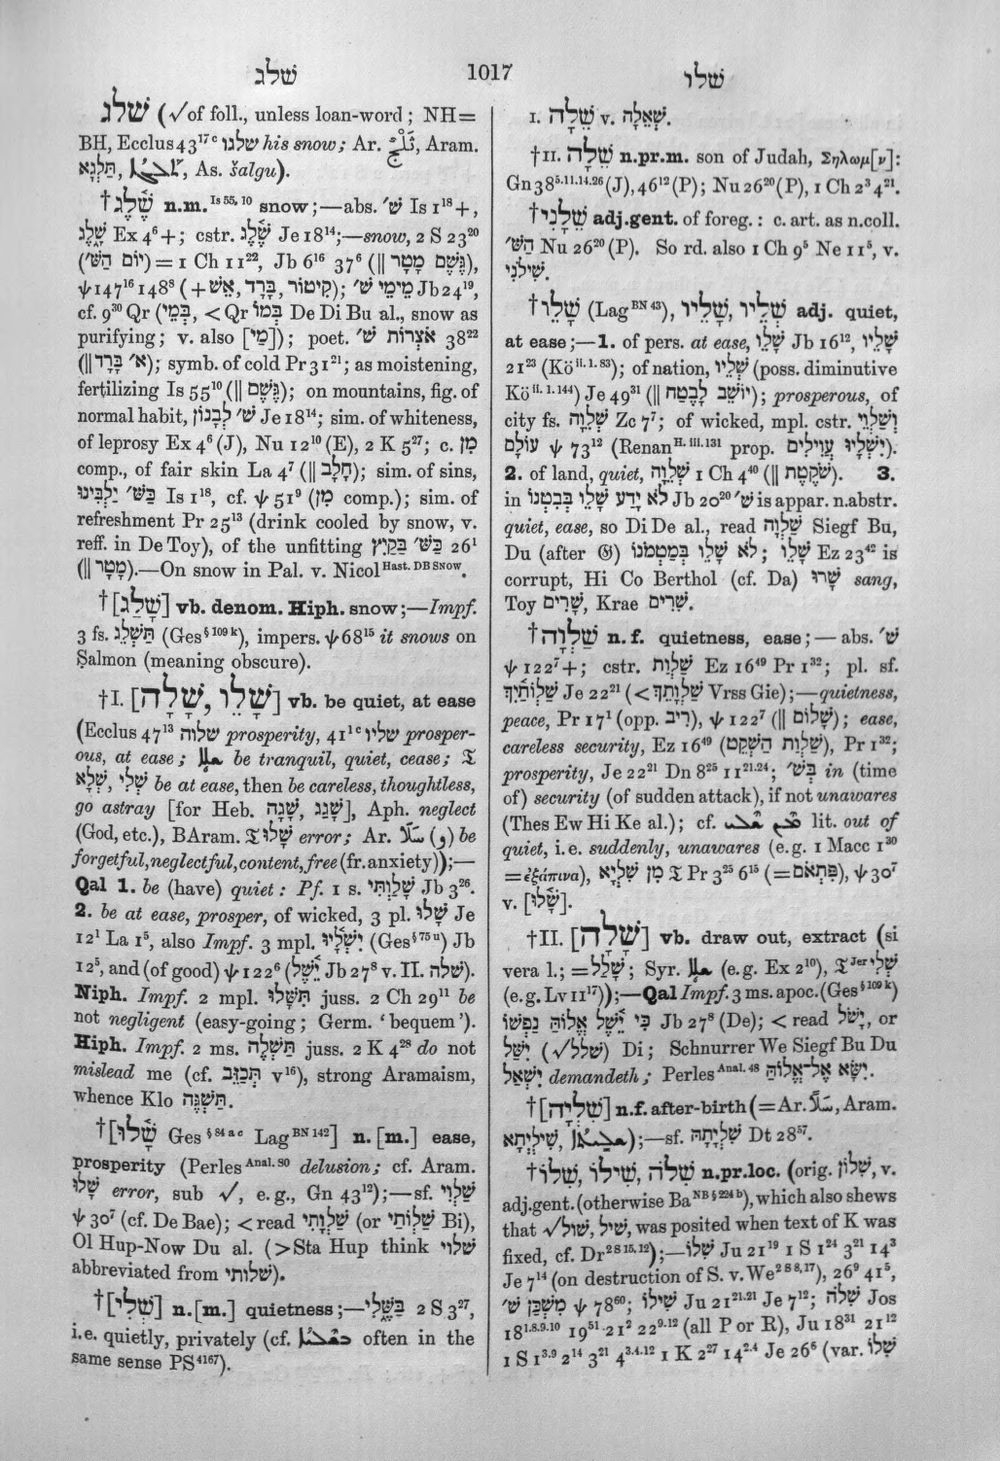 שלג 1017 שלו
שלג (√of foll., unless loan-word; NH=
BH, Ecclus 43¹⁷ᶜ שלגו his snow; Ar. ثَلْجٌ, Aram.
תַּלְגָא, ܬܠܓܐ, As. šalgu).
†שֶׁ֫לֶג n.m. Is 55, 10 snow;—abs. שׁ׳ Is 1¹⁸+,
שָׁ֑לֶג Ex 4⁶+; cstr. שֶׁ֫לֶג Je 18¹⁴;—snow, 2 S 23²⁰
(יוֹם הַשּׁ׳)=1 Ch 11²², Jb 6¹⁶ 37⁶ (‖ גֶּשֶׁם מָטָר),
ψ 147¹⁶ 148⁸ (+קִיטוֹר, בָּרָד, אֵשׁ); מֵימֵי שׁ׳ Jb 24¹⁹,
cf. 9³⁰ Qr (בְּמֵי, < Qr בְּמוֹ De Di Bu al., snow as
purifying; v. also [מַי]); poet. אֹצְרוֹת שׁ׳ 38²²
(‖א׳ בָּרָד); symb. of cold Pr 31²¹; as moistening,
fertilizing Is 55¹⁰ (‖ גֶּשֶׁם); on mountains, fig. of
normal habit, שׁ׳ לְבָנוֹן Je 18¹⁴; sim. of whiteness,
of leprosy Ex 4⁶ (J), Nu 12¹⁰ (E), 2 K 5²⁷; c. מִן
comp., of fair skin La 4⁷ (‖ חָלָב); sim. of sins,
כַּשּׁ׳ יַלְבִּינוּ Is 1¹⁸, cf. ψ 51⁹ (מִן comp.); sim. of
refreshment Pr 25¹³ (drink cooled by snow, v.
reff. in De Toy), of the unfitting כַּשּׁ׳ בַּקַּיִץ 26¹
(‖ מָטָר).—On snow in Pal. v. Nicol Hast. DB Snow.
†[שָׁלַג] vb. denom. Hiph. snow;—Impf.
3 fs. תַּשְׁלֵג (Ges § 109 k), impers. ψ 68¹⁵ it snows on
Ṣalmon (meaning obscure).
†I. [שָׁלֵו, שָׁלָה] vb. be quiet, at ease
(Ecclus 47¹³ שלוה prosperity, 41¹ᶜ שליו prosper-
ous, at ease; ܫܠܐ be tranquil, quiet, cease; 𝔗
שְׁלָא, שְׁלִי be at ease, then be careless, thoughtless,
go astray [for Heb. שָׁגַג, שָׁגָה], Aph. neglect
(God, etc.), BAram. 𝔗 שָׁלוּ error; Ar. سَلَا (و) be
forgetful, neglectful, content, free (fr. anxiety));—
Qal 1. be (have) quiet: Pf. 1 s. שָׁלַוְתִּי Jb 3²⁶.
2. be at ease, prosper, of wicked, 3 pl. שָׁלוּ Je
12¹ La 1⁵, also Impf. 3 mpl. יִשְׁלָ֫יוּ (Ges § 75 u) Jb
12⁶, and (of good) ψ 122⁶ (יֵ֫שֶׁל Jb 27⁸ v. II. שלה).
Niph. Impf. 2 mpl. תִּשָּׁלוּ juss. 2 Ch 29¹¹ be
not negligent (easy-going; Germ. ‘bequem’).
Hiph. Impf. 2 ms. תַּשְׁלֶה juss. 2 K 4²⁸ do not
mislead me (cf. תְּכַזֵּב v¹⁶), strong Aramaism,
whence Klo תַּשְׁגֶּה.
†[שָׁ֫לוּ Ges § 84 a c Lag BN 142] n. [m.] ease,
prosperity (Perles Anal. 80 delusion; cf. Aram.
שָׁלוּ error, sub √, e.g., Gn 43¹²);—sf. שַׁלְוִי
ψ 30⁷ (cf. De Bae); < read שַׁלְוָתִי (or שָׁלוֹתִי Bi),
Ol Hup-Now Du al. (>Sta Hup think שלוי
abbreviated from שלותי).
†[שְׁלִי] n.[m.] quietness;—בַּשֶּׁ֑לִי 2 S 3²⁷,
i.e. quietly, privately (cf. ܒܫܠܝܐ often in the
same sense PS 4167).
I. שֵׁלָה v. שְׁאֵלָה.
†II. שֵׁלָה n.pr.m. son of Judah, Σηλωμ[ν]:
Gn 38⁵·¹¹·¹⁴·²⁶ (J), 46¹² (P); Nu 26²⁰ (P), 1 Ch 2³ 4²¹.
†שֵׁלָנִי adj.gent. of foreg.: c. art. as n.coll.
הַשּׁ׳ Nu 26²⁰ (P). So rd. also 1 Ch 9⁵ Ne 11⁵, v.
שִׁילֹנִי.
†שָׁלֵו (Lag BN 43), שָׁלֵיו, שְׁלֵיו adj. quiet,
at ease;—1. of pers. at ease, שָׁלֵו Jb 16¹², שָׁלֵיו
21²³ (Kö ii. 1. 83); of nation, שְׁלֵיו (poss. diminutive
Kö ii. 1. 144) Je 49³¹ (‖ יוֹשֵׁב לָבֶטַח); prosperous, of
city fs. שְׁלֵוָה Zc 7⁷; of wicked, mpl. cstr. וְשַׁלְוֵי
עוֹלָם ψ 73¹² (Renan H. iii. 131 prop. יִשְׁלָיוּ עֲוִילִים).
2. of land, quiet, שְׁלֵוָה 1 Ch 4⁴⁰ (‖ שֹׁקֶטֶת). 3.
in לֹא יָדַע שָׁלֵו בְּבִטְנוֹ Jb 20²⁰ שׁ׳ is appar. n.abstr.
quiet, ease, so Di De al., read שַׁלְוָה Siegf Bu,
Du (after 𝔊) לֹא שָׁלֵו בְּמַטְמֹנוֹ; שָׁלֵו Ez 23⁴² is
corrupt, Hi Co Berthol (cf. Da) שָׁרוּ sang,
Toy שָׁרִים, Krae שָׁרִים.
†שַׁלְוָה n. f. quietness, ease;—abs. שׁ׳
ψ 122⁷+; cstr. שַׁלְוַת Ez 16⁴⁹ Pr 1³²; pl. sf.
שַׁלְוֺתַ֫יִךְ Je 22²¹ (< שַׁלְוָתֵךְ Vrss Gie);—quietness,
peace, Pr 17¹ (opp. רִיב), ψ 122⁷ (‖ שָׁלוֹם); ease,
careless security, Ez 16⁴⁹ (שַׁלְוַת הַשְׁקֵט), Pr 1³²;
prosperity, Je 22²¹ Dn 8²⁵ 11²¹·²⁴; בְּשׁ׳ in (time
of) security (of sudden attack), if not unawares
(Thes Ew Hi Ke al.); cf. ܡܢ ܫܠܝ lit. out of
quiet, i.e. suddenly, unawares (e.g. 1 Macc 1³⁰
=ἐξάπινα), מִן שֶׁלְיָא 𝔗 Pr 3²⁵ 6¹⁵ (=פִּתְאֹם), ψ 30⁷
v. [שָׁ֫לוּ].
†II. [שָׁלָה] vb. draw out, extract (si
vera l.; =שָׁלַל; Syr. ܫܠܐ (e.g. Ex 2¹⁰), 𝔗 Jer שְׁלִי
(e.g. Lv 11¹⁷));—Qal Impf. 3 ms. apoc. (Ges § 109 k)
כִּי יֵ֫שֶׁל אֱלוֹהַּ נַפְשׁוֹ Jb 27⁸ (De); < read יָשֹׁל, or
יִשַּׁל (√שׁלל) Di; Schnurrer We Siegf Bu Du
יִשְׁאַל demandeth; Perles Anal. 48 יִשָּׂא אֶל־אֱלוֹהַּ.
†[שִׁלְיָה] n.f. after-birth (=Ar. سَلًا, Aram.
שִׁילְיְתָא, ܫܠܝܬܐ);—sf. שִׁלְיָתָהּ Dt 28⁵⁷.
†שִׁלֹה, שִׁילוֹ, שִׁלוֹ n.pr.loc. (orig. שִׁלוֹן, v.
adj.gent. (otherwise Ba NB § 224 b), which also shews
that √שׁיל, שׁול, was posited when text of K was
fixed, cf. Dr 2 S 15, 12);—שִׁלוֹ Ju 21¹⁹ 1 S 1²⁴ 3²¹ 14³
Je 7¹⁴ (on destruction of S. v. We 2 S 8, 17), 26⁹ 41⁵,
מִשְׁכַּן שׁ׳ ψ 78⁶⁰; שִׁילוֹ Ju 21²¹·²¹ Je 7¹²; שִׁלֹה Jos
18¹·⁸·⁹·¹⁰ 19⁵¹ 21² 22⁹·¹² (all P or R), Ju 18³¹ 21¹²
1 S 1³·⁹ 2¹⁴ 3²¹ 4³·⁴·¹² 1 K 2²⁷ 14²·⁴ Je 26⁶ (var. שִׁלוֹ